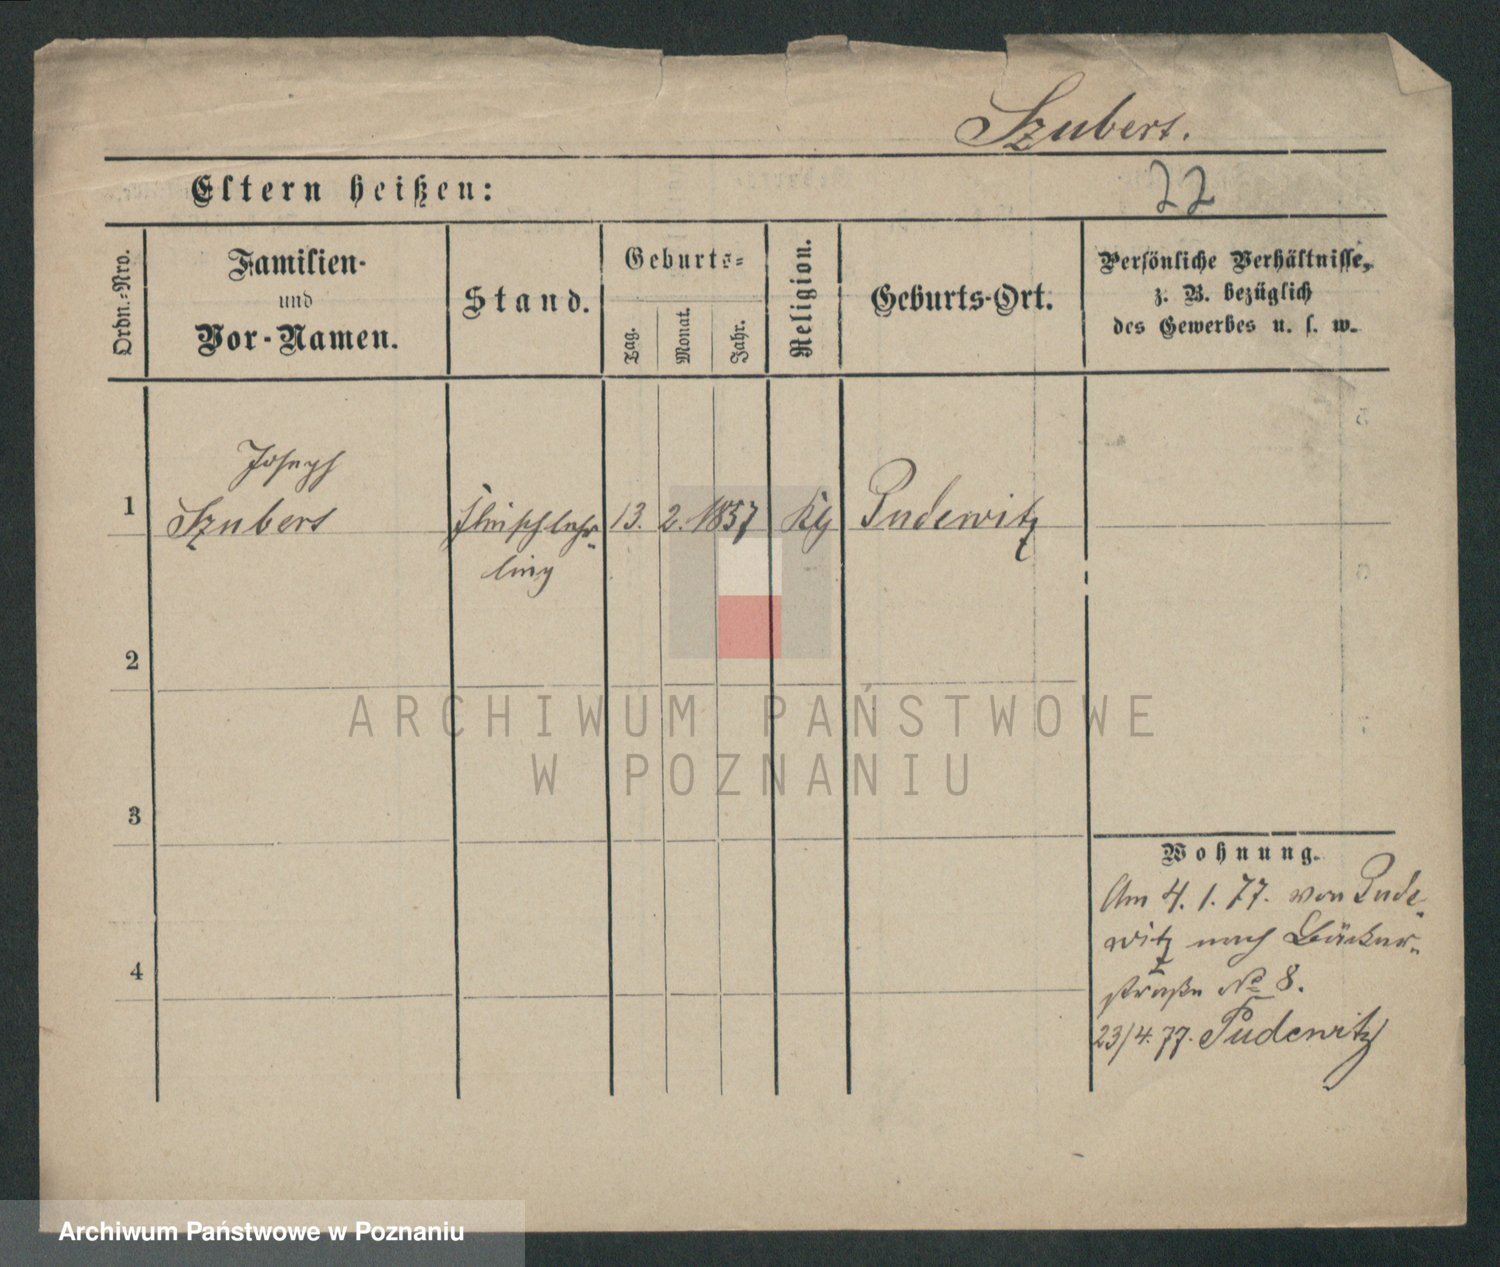 Szubert.
Eltern heißen:
22
Ordn.-Nro.
Familien-
und
Vor-Namen.
Stand.
Geburts-
Tag.
Monat.
Jahr.
Religion.
Geburts-Ort.
Persönliche Verhältnisse,
z. B. bezüglich
des Gewerbes u. s. w.
Joseph
1 Szubert Fleischlehr- 13. 2. 1857 Pudewitz
ling
2
3
4
Wohnung.
Am 4. 1. 77. von Pude-
witz nach Bäcker-
straße No 8.
23/4. 77. Pudewitz
ARCHIWUM PAŃSTWOWE
W POZNANIU
Archiwum Państwowe w Poznaniu